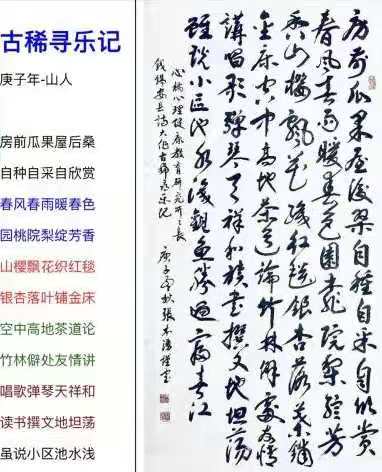 古稀寻乐记
庚子年-山人
房前瓜果屋后桑
自种自采自欣赏
春风春雨暖春色
园桃院梨绽芳香
山樱飘花织红毯
银杏落叶铺金床
空中高地茶道论
竹林僻处友情讲
唱歌弹琴天祥和
读书撰文地坦荡
虽说小区池水浅
房前瓜果屋后桑自种自采自欣赏
春风春雨暖春色园桃院梨绽芳
香山樱飘花织红毯银杏落叶铺
金床空中高地茶道论竹林僻处友情
讲唱歌弹琴天祥和读书撰文地坦荡
雖说小区池水浅觀鱼勝過富春江
心桥心理健康教育研究所所長
诗大作古稀寻乐记
庚子年秋張